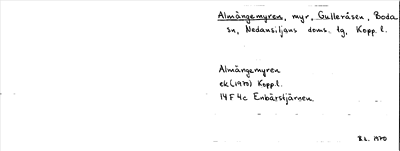 Almångemyren, myr, Gulleråsen, Boda
sn, Nedansiljans doms. lg, Kopp. l.
Almångemyren
ek (1970) Kopp.l.
14 F 4c Enbärstjärnen
1970